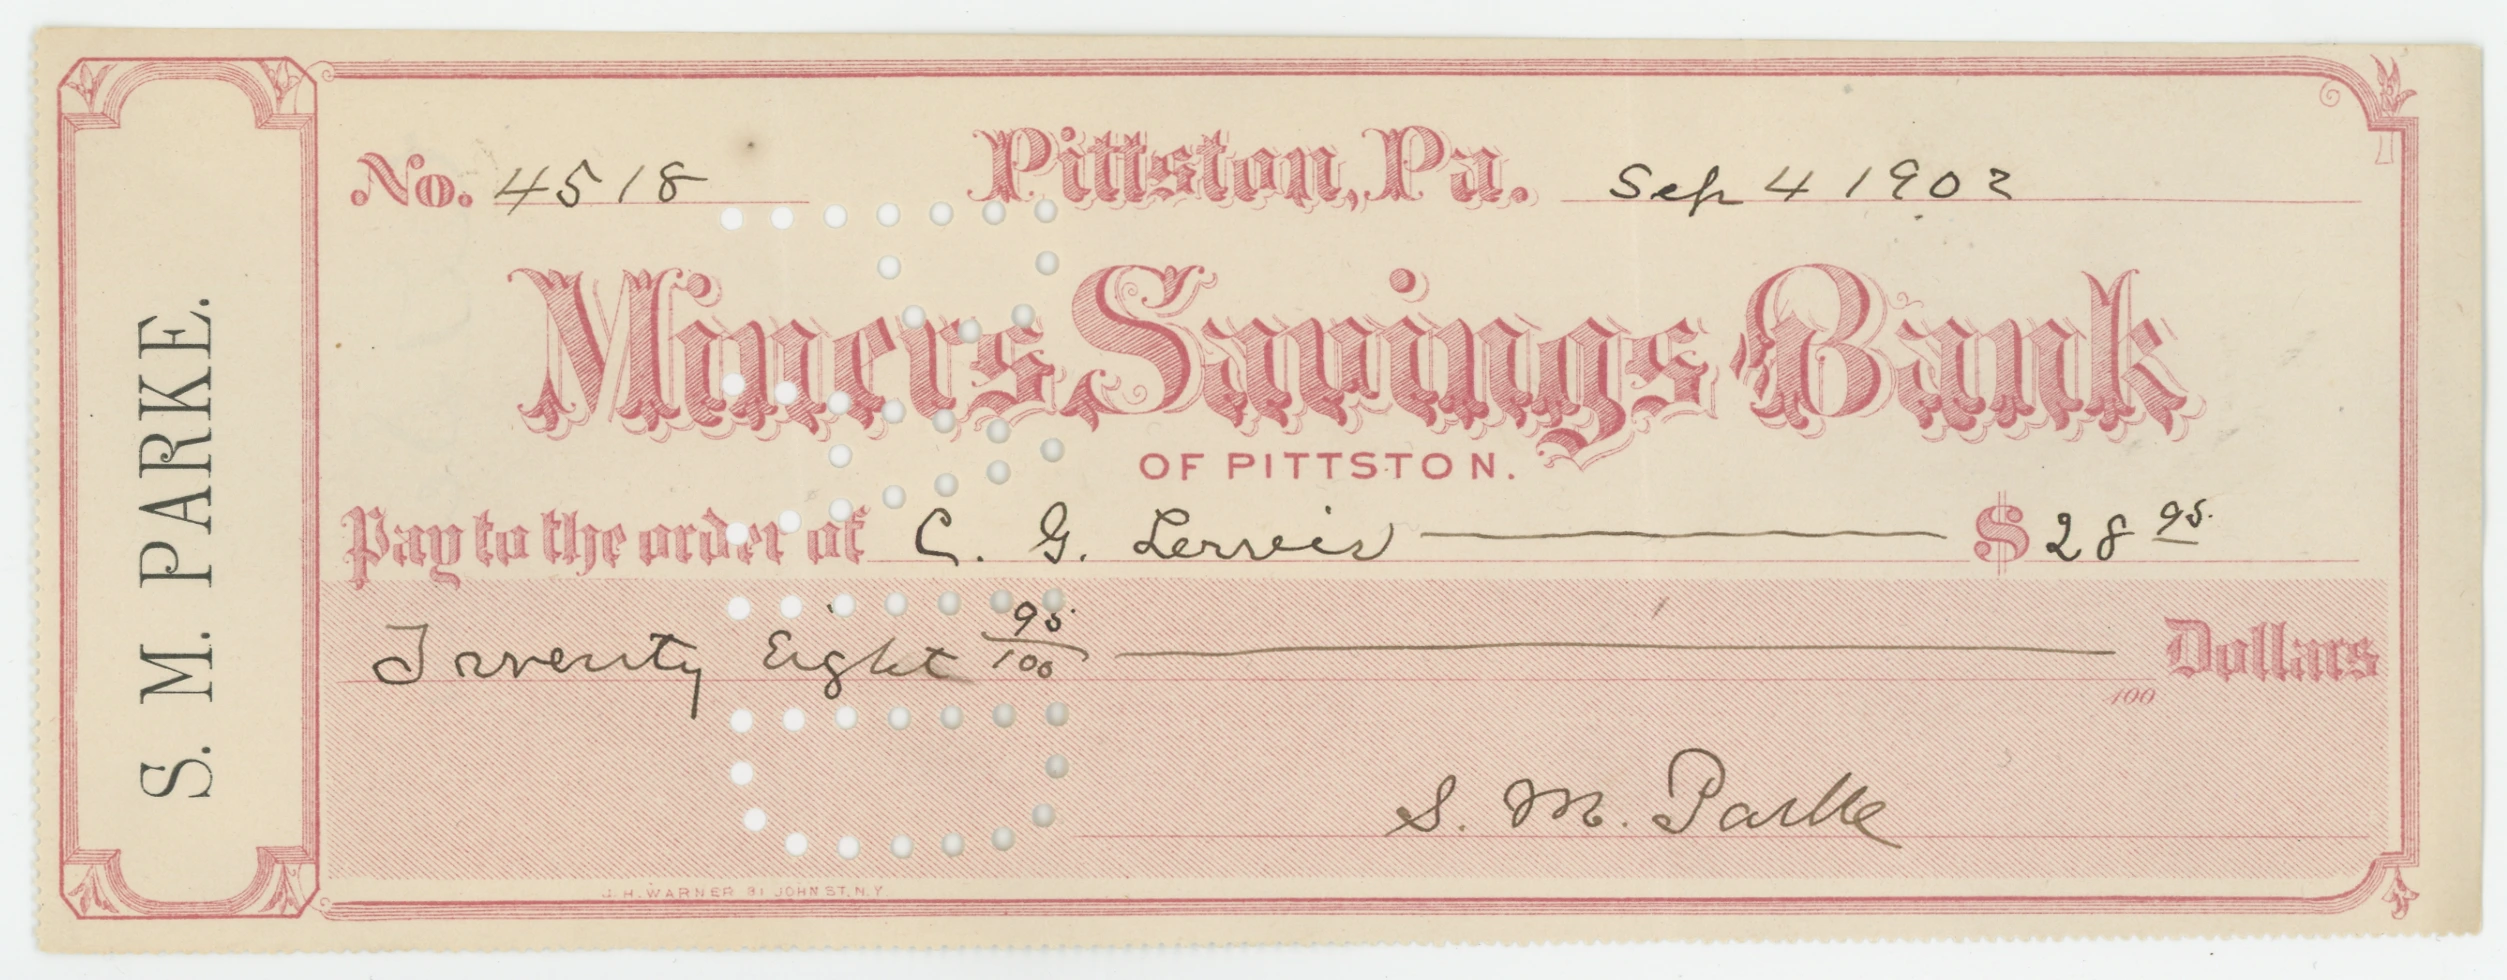 S. M. PARKE.
No. 4518 Pittston, Pa. Sep 4 1902
Miners Savings Bank
OF PITTSTON.
Pay to the order of C. G. Lewis $ 28 95
Twenty Eight 95/100 Dollars
/100
S. M. Parke
J. H. WARNER 81 JOHN ST. N.Y.
PAID